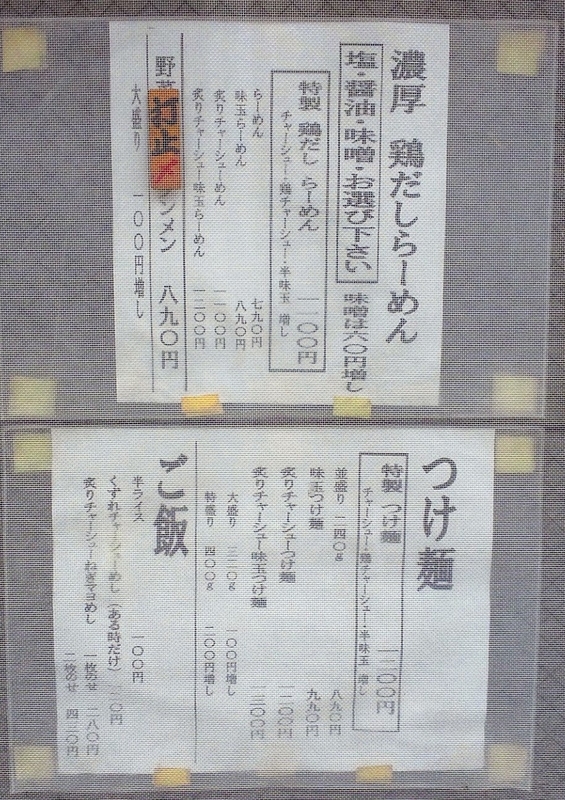 濃厚 鶏だしらーめん
塩・醤油・味噌・お選び下さい 味噌は六〇円増し
特製 鶏だし らーめん 一一〇〇円
チャーシュー・鶏チャーシュー・半味玉 増し
らーめん 七九〇円
味玉らーめん 八九〇円
炙りチャーシューめん 一一〇〇円
炙りチャーシュー味玉らーめん 一二〇〇円
野菜 打止 ンメン 八九〇円
大盛り 一〇〇円増し
つけ麺
特製 つけ麺 一二〇〇円
チャーシュー・鶏チャーシュー・半味玉 増し
並盛り 二四〇g 八九〇円
味玉つけ麺 九九〇円
炙りチャーシューつけ麺 一二〇〇円
炙りチャーシュー味玉つけ麺 一三〇〇円
大盛り 三二〇g 一〇〇円増し
特盛り 四〇〇g 二〇〇円増し
ご飯
半ライス 一〇〇円
くずれチャーシューめし(ある時だけ) 〇円
炙りチャーシューねぎマヨめし 一枚のせ 二八〇円
二枚のせ 四三〇円